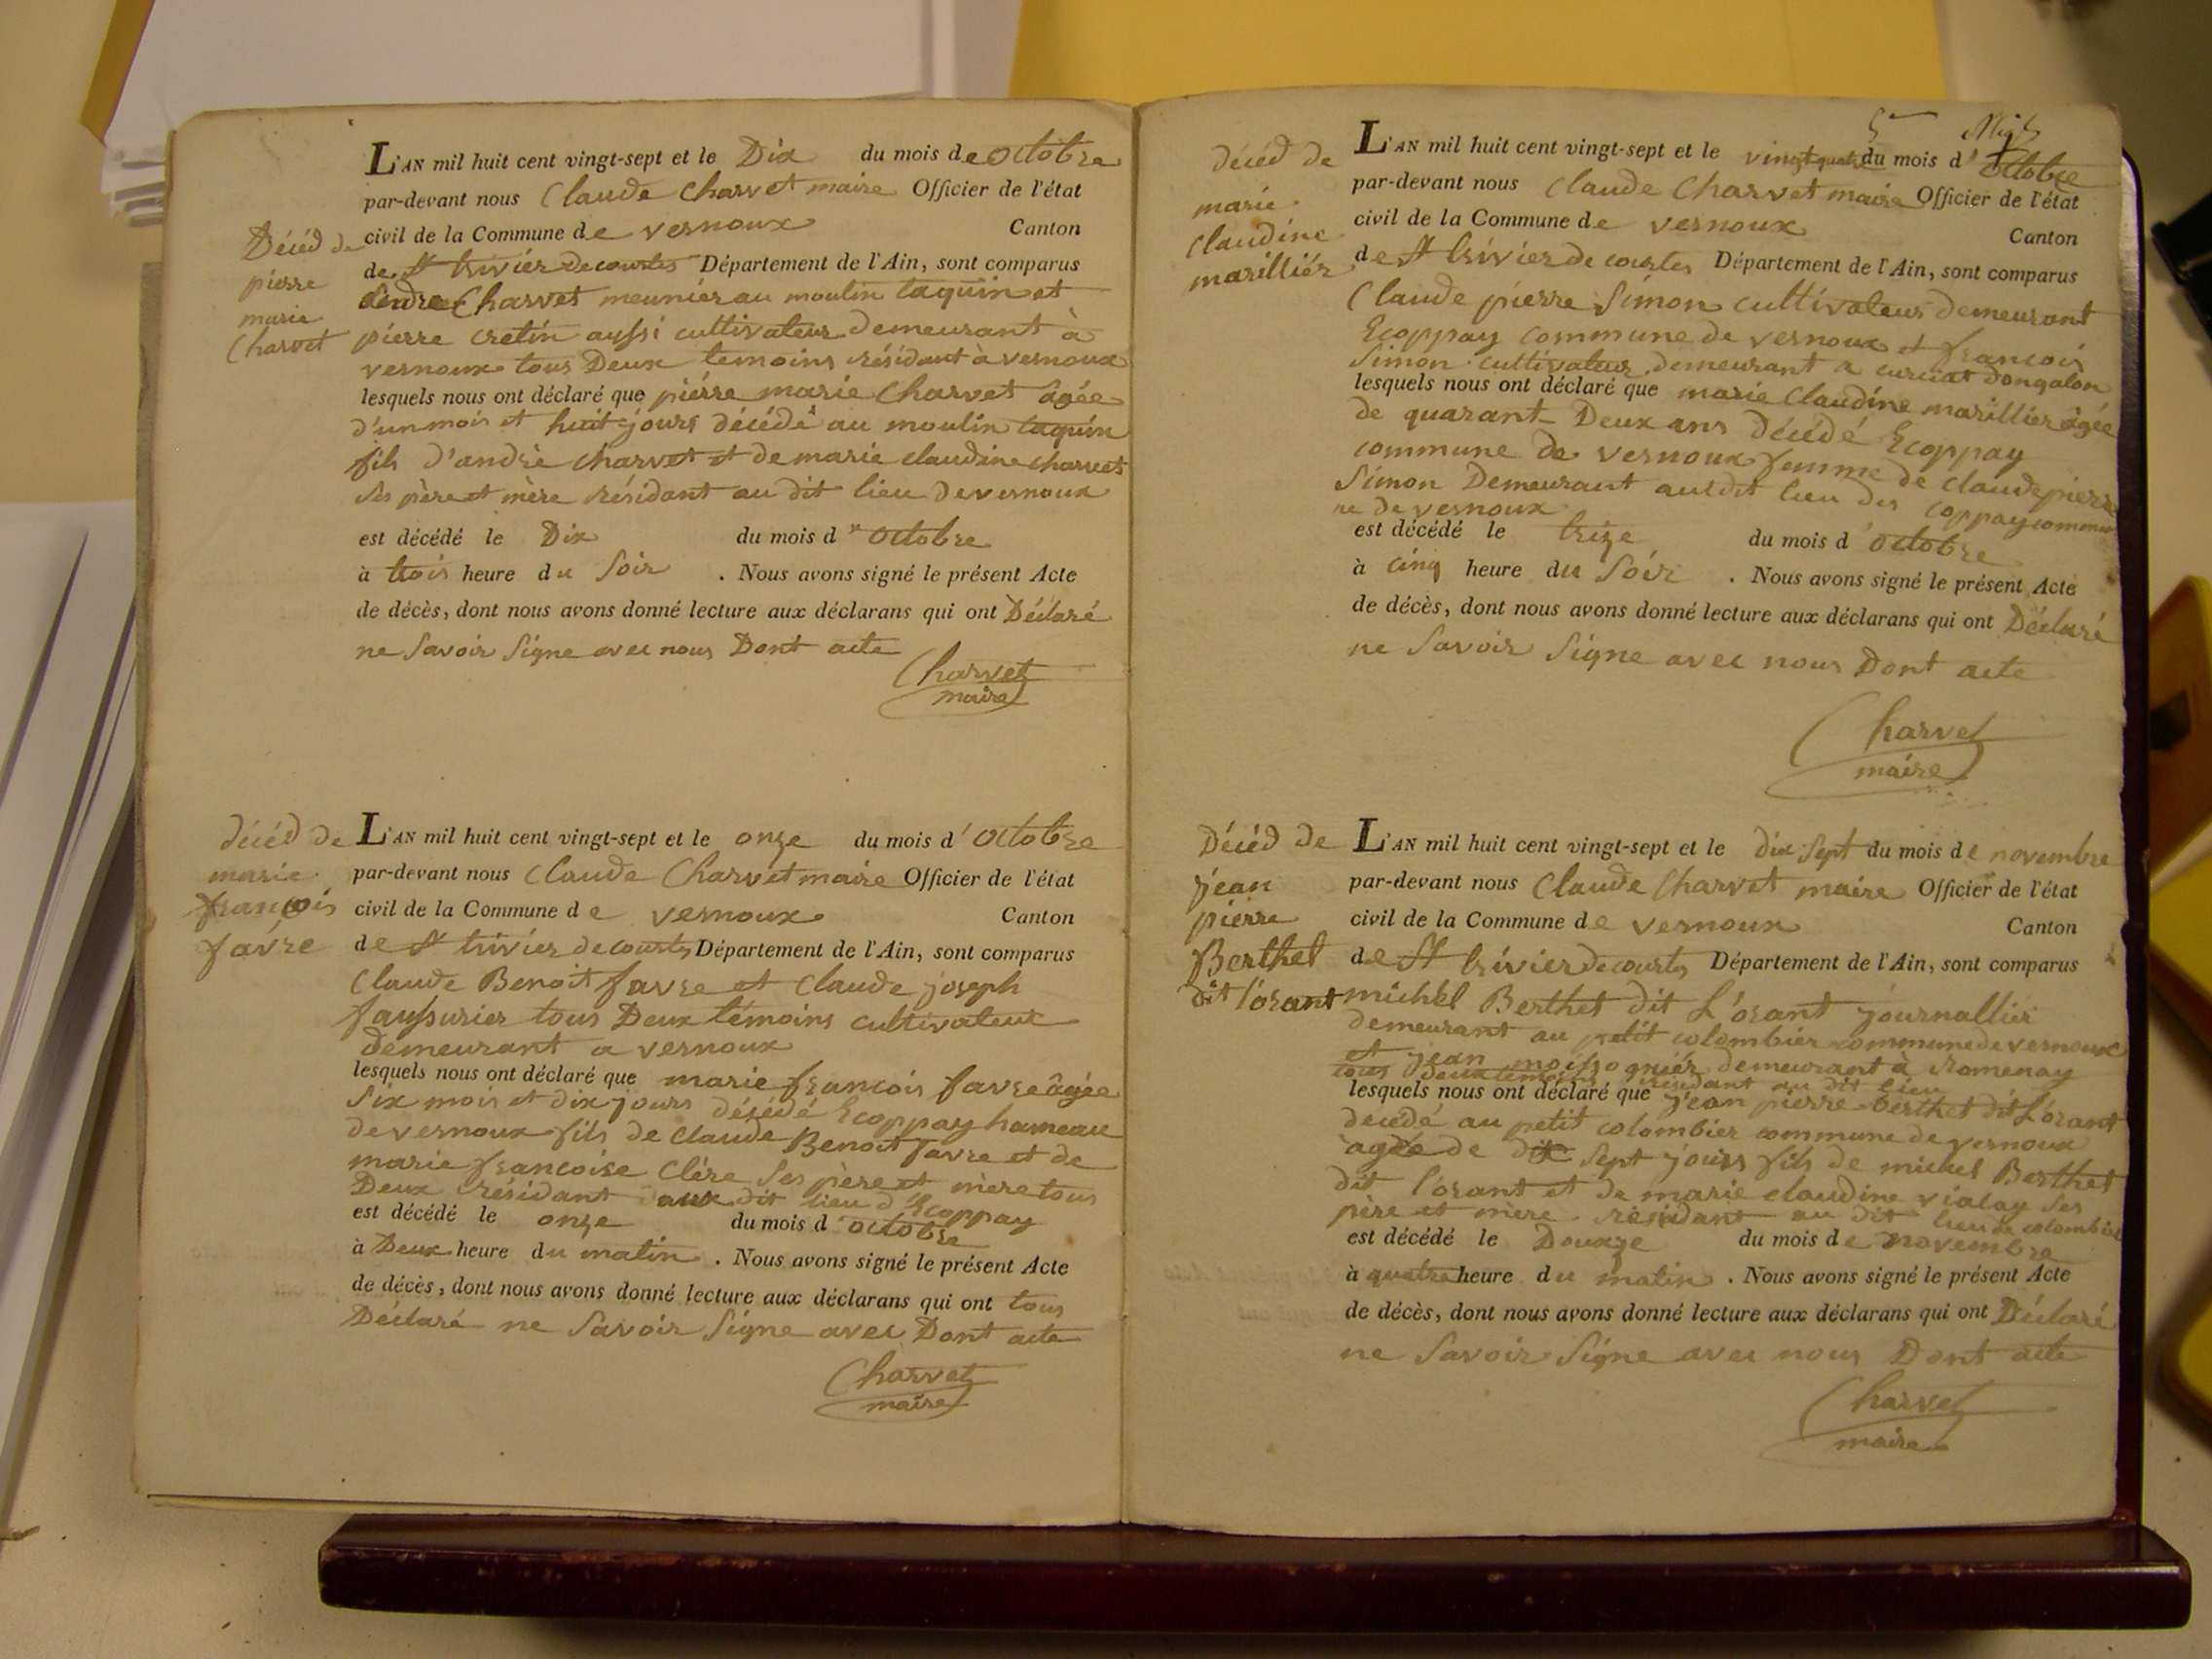 L'AN mil huit cent vingt-sept et le Dix du mois de octobre
par-devant nous Claude Charvet maire Officier de l'état
civil de la Commune de vernoux Canton
de St trivier de courtes Département de l'Ain, sont comparus
Décéd de
pierre
marie
Charvet
andre Charvet meunier au moulin taquin et
pierre cretin aussi cultivateur demeurant à
vernoux tous Deux temoins résidant à vernoux
lesquels nous ont déclaré que pierre marie Charvet âgée
d'un mois et huit jours décédé au moulin taquin
fils d'andrè charvet et de marie claudine charvet
ses père et mère résidant au dit lieu de vernoux
est décédé le Dix du mois d'octobre
à trois heure du Soir . Nous avons signé le présent Acte
de décès, dont nous avons donné lecture aux déclarans qui ont Déclaré
ne Savoir Signe avec nous Dont acte
Charvet
maire
décéd de
marie
françois
favre
L'AN mil huit cent vingt-sept et le onze du mois d'octobre
par-devant nous Claude Charvet maire Officier de l'état
civil de la Commune de vernoux Canton
de St trivier de courtes Département de l'Ain, sont comparus
Claude Benoit favre et Claude joseph
faussurier tous Deux témoins cultivateur
demeurant a vernoux
lesquels nous ont déclaré que marie françois favre âgée
Six mois et dix jours décédé Ecoppay hameau
de vernoux fils de Claude Benoit favre et de
marie françoise Clère Ses père et mère tous
Deux résidant aux dit lieu d'Ecoppay
est décédé le onze du mois d'octobre
à Deux heure du matin . Nous avons signé le présent Acte
de décès, dont nous avons donné lecture aux déclarans qui ont tous
Déclaré ne Savoir Signe avec Dont acte
Charvet
maire
décéd de
marie
claudine
marilliér
L'AN mil huit cent vingt-sept et le vingt quatre du mois d'octobre
par-devant nous Claude Charvet maire Officier de l'état
civil de la Commune de vernoux Canton
de St trivier de courtes Département de l'Ain, sont comparus
Claude pierre Simon cultivateur demeurant
Ecoppay commune de vernoux et françois
Simon cultivateur demeurant a curciat dongalon
lesquels nous ont déclaré que marie Claudine marillier âgée
de quarant Deux ans Décédé Ecoppay
commune de vernoux femme de claude pierre
Simon Demeurant au dit lieu des coppay commu
ne de vernoux
est décédé le trize du mois d'octobre
à cinq heure du Soir . Nous avons signé le présent Acte
de décès, dont nous avons donné lecture aux déclarans qui ont Déclaré
ne Savoir Signe avec nous Dont acte
Charvet
maire
Décéd de
jean
pierre
Berthet
dit l'orant
L'AN mil huit cent vingt-sept et le dix Sept du mois de novembre
par-devant nous Claude Charvet maire Officier de l'état
civil de la Commune de vernoux Canton
de St trivier de courtes Département de l'Ain, sont comparus
michel Berthet dit L'orant journallier
demeurant au petit colombier commune de vernoux
et jean moissognier demeurant à romenay
tous deux témoins résidant au dit lieu
lesquels nous ont déclaré que jean pierre berthet dit L'orant
decédé au petit colombier commune de vernoux
âgée de dix Sept jours fils de michel Berthet
dit l'orant et de marie claudine vialay Ses
père et mère résidant au dit lieu de colombier
est décédé le Douxze du mois de novembre
à quatre heure du matin . Nous avons signé le présent Acte
de décès, dont nous avons donné lecture aux déclarans qui ont Déclaré
ne Savoir Signe avec nous Dont acte
Charvet
maire